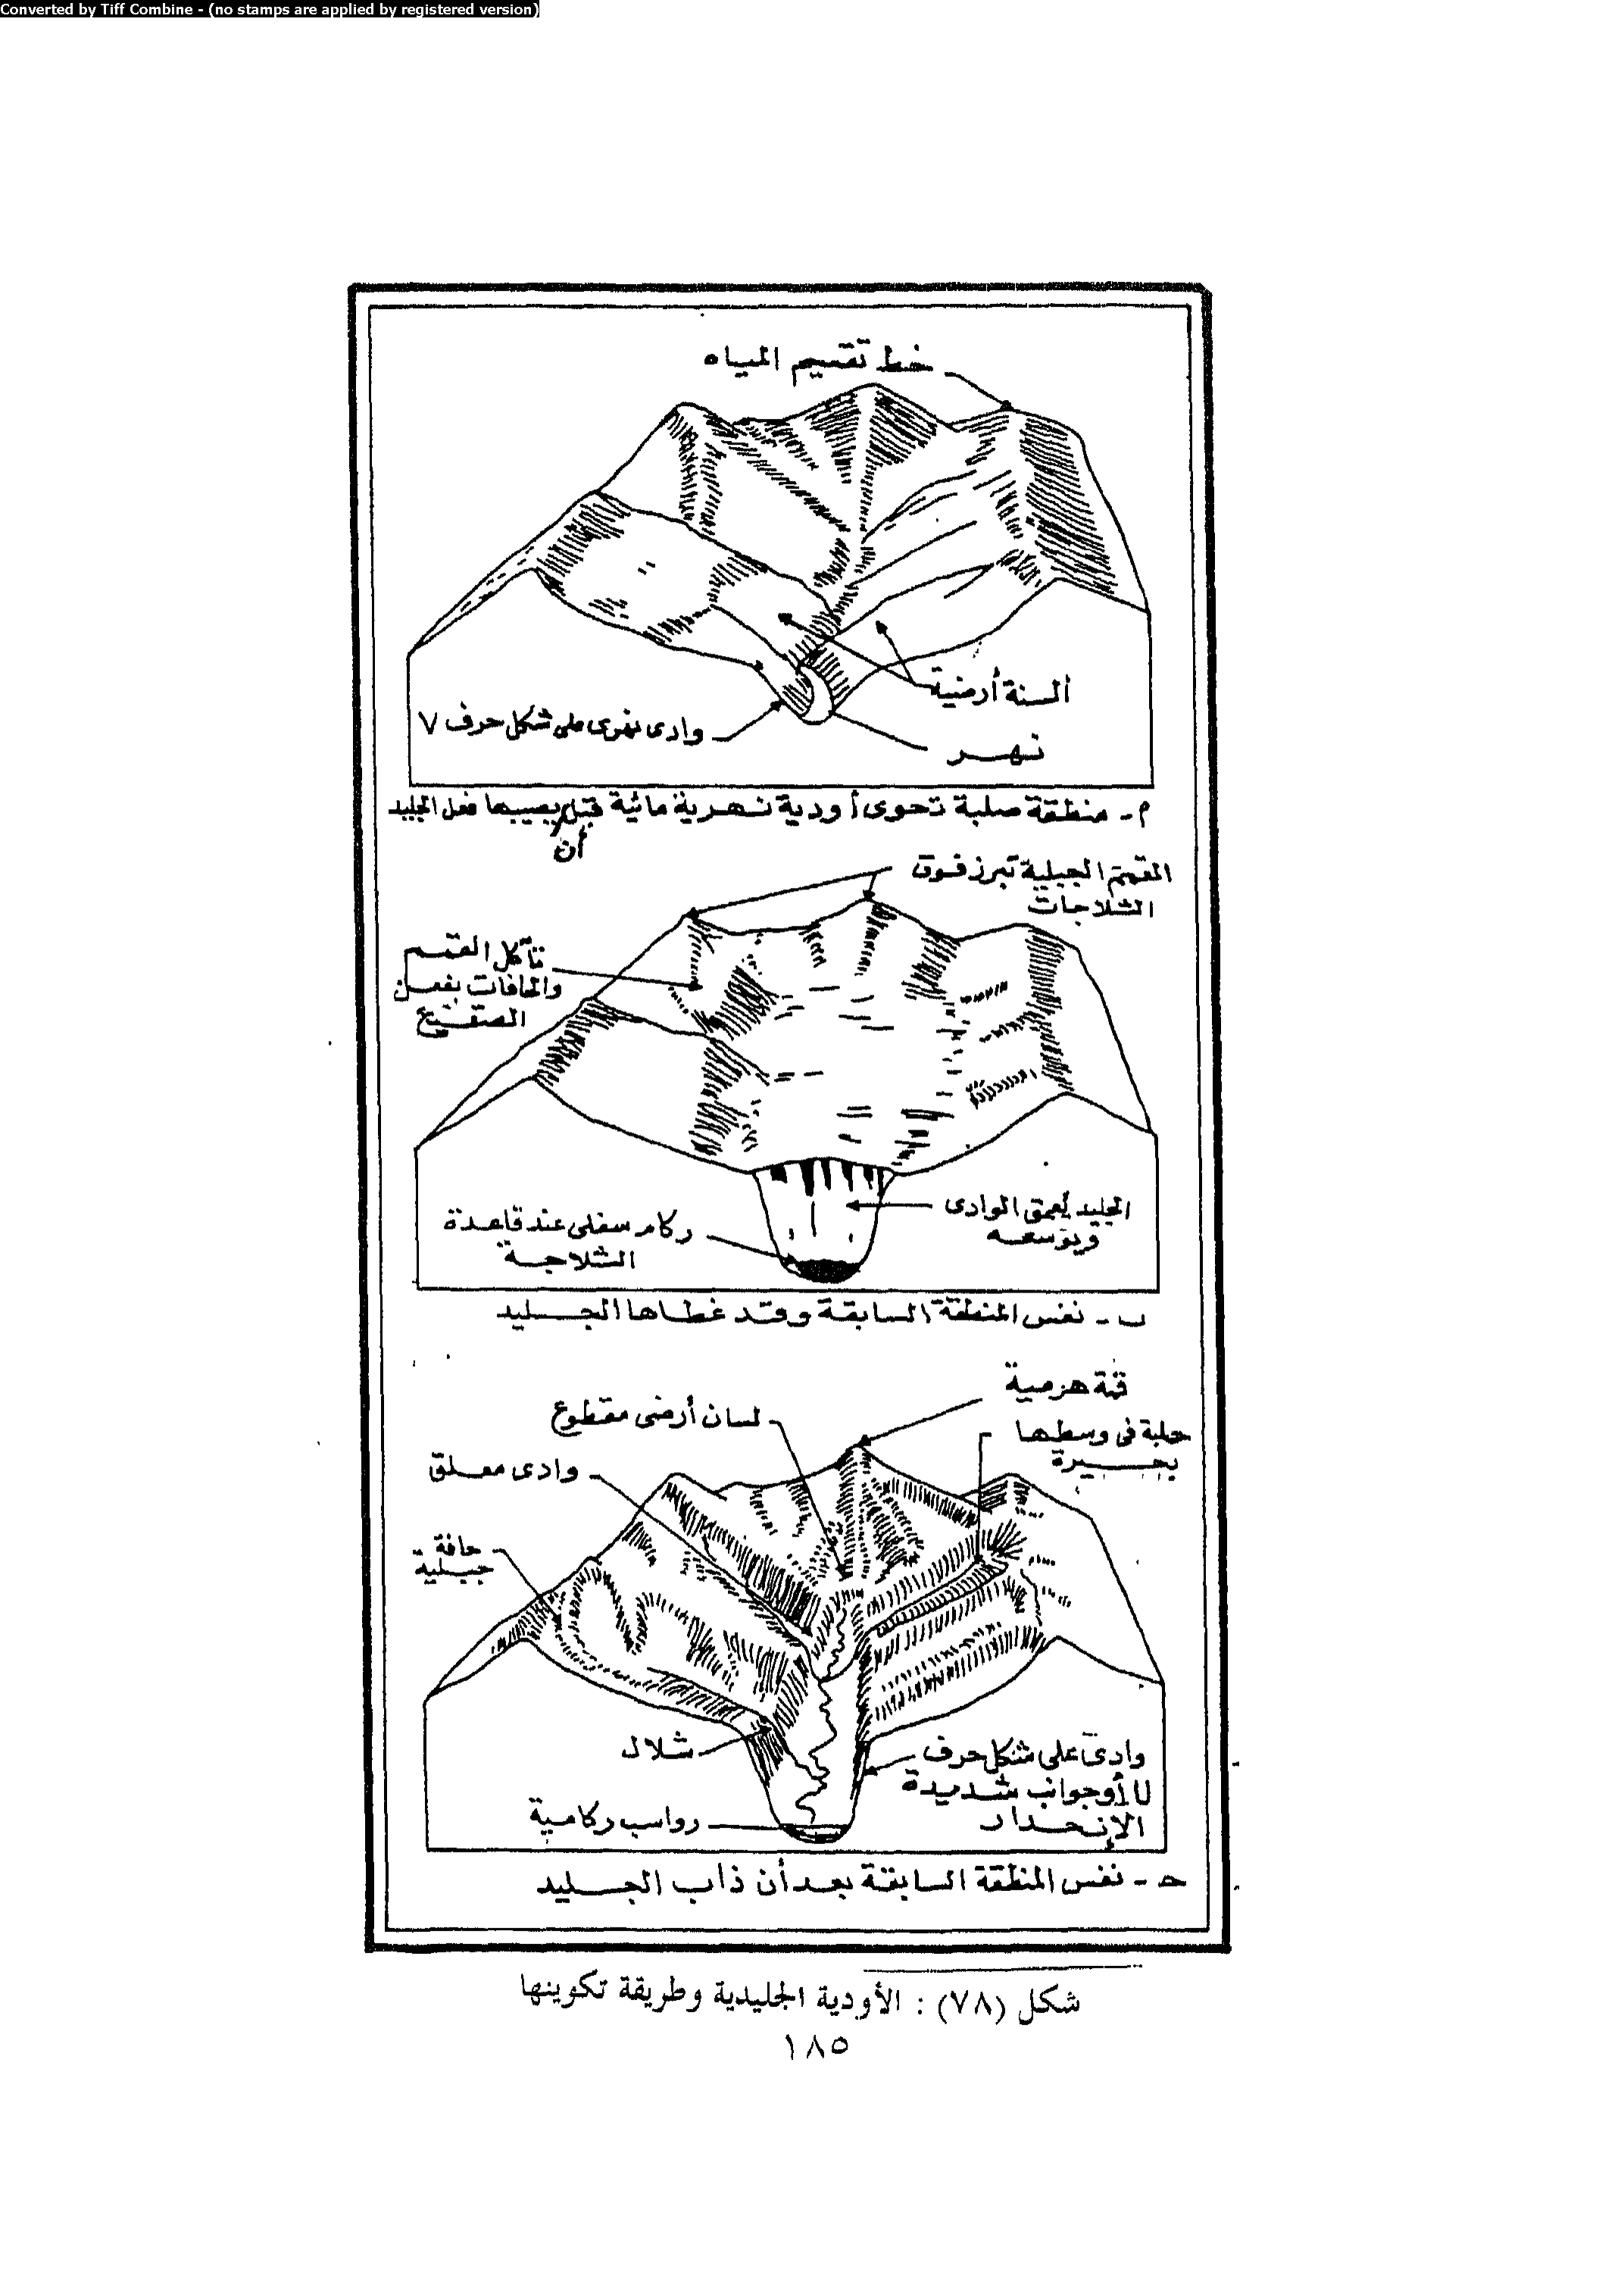 Converted by Tiff Combine - (no stamps are applied by registered version)
خط تقسيم المياه
ألسنة أرضية
وادى نهرى على شكل حرف V
نهر
أ - منطقة صلبة تحوى أودية نهرية مائية قبل أن يصيبها فعل الجليد
القمم الجبلية تبرز فوق
الثلاجات
تآكل القمم
والحافات بفعل
الصقيع
الجليد يُعمق الوادى
ويوسعه
ركام سفلى عند قاعدة
الثلاجة
ب - نفس المنطقة السابقة وقد غطاها الجليد
قمة هرمية
لسان أرضى مقطوع
حلبة فى وسطها
بحيرة
وادى معلق
حافة
جبلية
شلال
وادى على شكل حرف
U أو جوانب شديدة
الإنحدار
رواسب ركامية
حـ - نفس المنطقة السابقة بعد أن ذاب الجليد
شكل (٧٨) : الأودية الجليدية وطريقة تكوينها
١٨٥